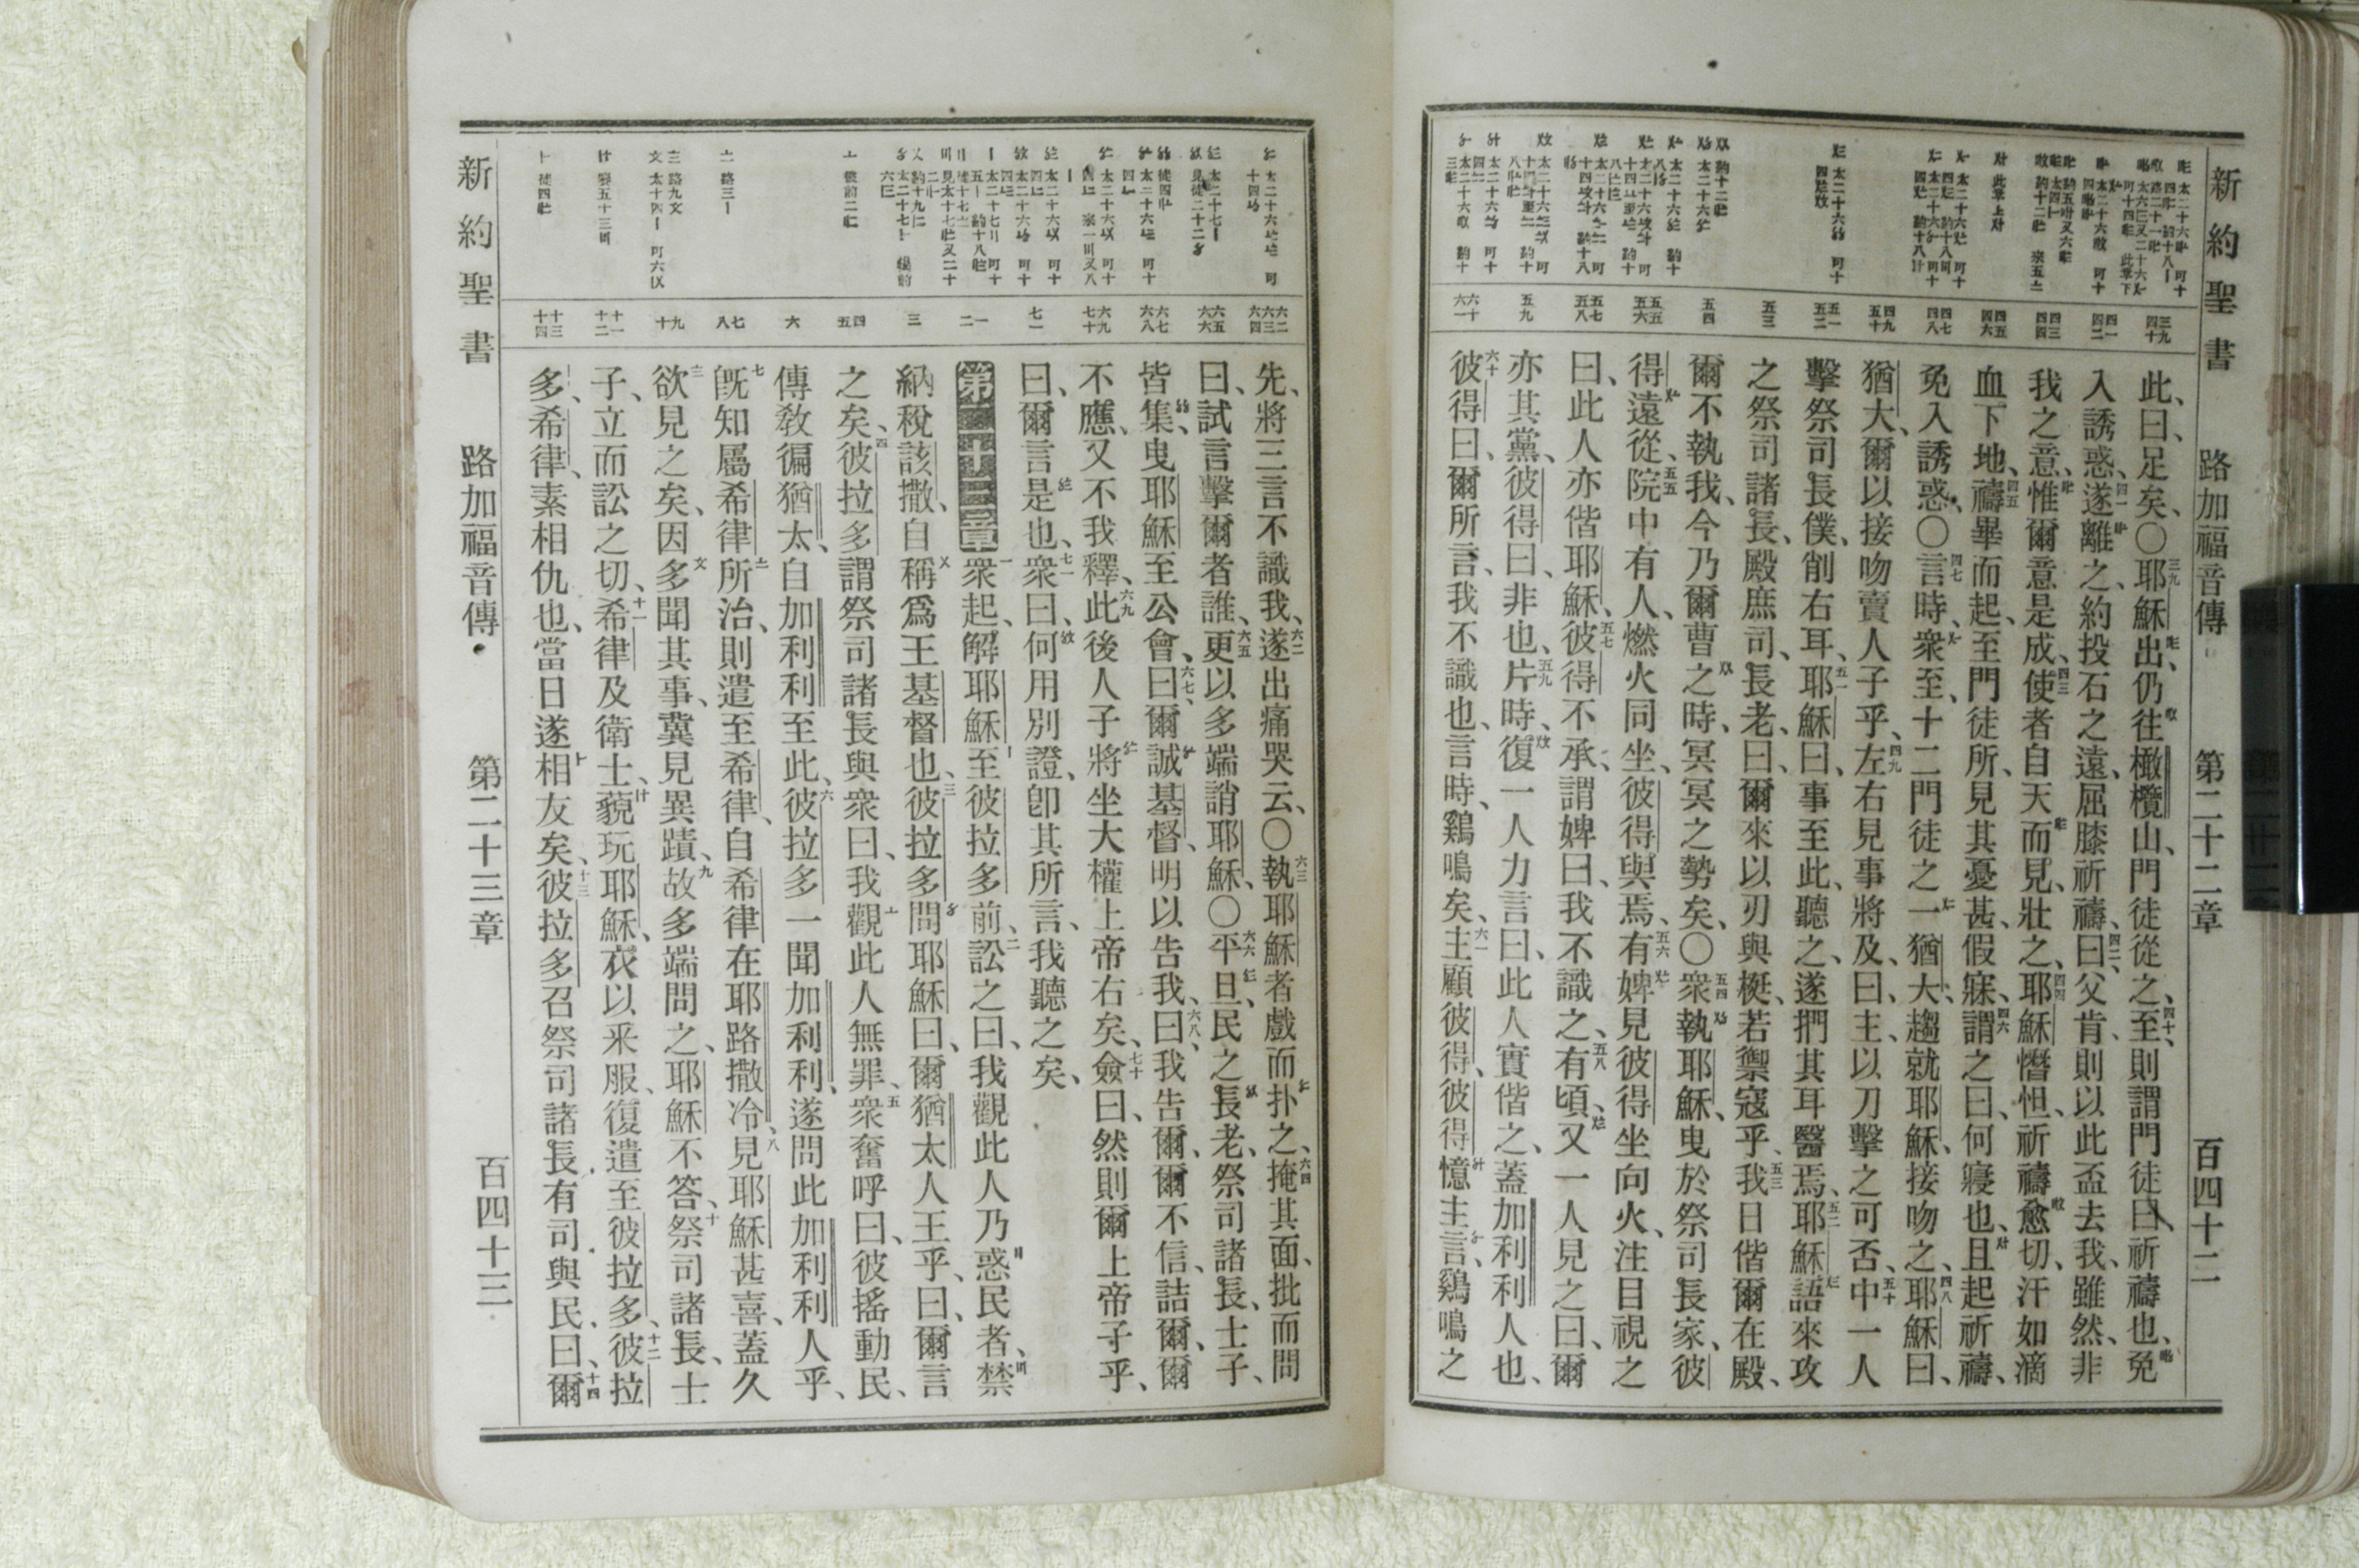 新約聖書 路加福音傳 第二十二章 百四十二
三九 四十
四一 四二
四三 四四
四五 四六
四七 四八
四九 五十
五一 五二
五三
五四
五五 五六
五七 五八
五九
六十 六一
此、曰、足矣、〇耶穌出、仍往橄欖山、門徒從之、至、則謂門徒曰、祈禱也、免
入誘惑、遂離之、約投石之遠、屈膝祈禱、曰、父肯、則以此盃去我、雖然、非
我之意、惟爾意是成、使者自天而見、壯之、耶穌憯怛、祈禱愈切、汗如滴
血下地、禱畢而起、至門徒所、見其憂甚、假寐、謂之曰、何寢也、且起祈禱、
免入誘惑、〇言時、衆至、十二門徒之一猶大、趨就耶穌、接吻之、耶穌曰、
猶大、爾以接吻賣人子乎、左右見事將及、曰、主、以刀擊之可否、中一人
擊祭司長僕、削右耳、耶穌曰、事至此、聽之、遂捫其耳醫焉、耶穌語來攻
之祭司諸長、殿庶司、長老、曰、爾來以刃與梃、若禦寇乎、我日偕爾在殿、
爾不執我、今乃爾曹之時、冥冥之勢矣、〇衆執耶穌、曳於祭司長家、彼
得遠從、院中有人、燃火同坐、彼得與焉、有婢見彼得坐向火、注目視之
曰、此人亦偕耶穌、彼得不承、謂婢曰、我不識之、有頃、又一人見之曰、爾
亦其黨、彼得曰、非也、片時、復一人力言曰、此人實偕之、蓋加利利人也、
彼得曰、爾所言、我不識也、言時、鷄鳴矣、主顧彼得、彼得憶主言、鷄鳴之
先、將三言不識我、遂出痛哭云、〇執耶穌者戲而扑之、掩其面、批而問
曰、試言擊爾者誰、更以多端誚耶穌、〇平旦、民之長老、祭司諸長、士子、
皆集、曳耶穌至公會、曰、爾誠基督、明以告我、曰、我告爾、爾不信、詰爾、爾
不應、又不我釋、此後人子將坐大權上帝右矣、僉曰、然則爾上帝子乎、
曰、爾言是也、衆曰、何用別證、卽其所言、我聽之矣、
第二十三章 衆起、解耶穌至彼拉多前、訟之曰、我觀此人乃惑民者、禁
納稅該撒、自稱爲王基督也、彼拉多問耶穌曰、爾猶太人王乎、曰、爾言
之矣、彼拉多謂祭司諸長與衆曰、我觀此人無罪、衆奮呼曰、彼搖動民、
傳敎徧猶太、自加利利至此、彼拉多一聞加利利、遂問此加利利人乎、
旣知屬希律所治、則遣至希律、自希律在耶路撒冷、見耶穌甚喜、蓋久
欲見之矣、因多聞其事、冀見異蹟、故多端問之、耶穌不答、祭司諸長、士
子、立而訟之切、希律及衛士、藐玩耶穌、衣以采服、復遣至彼拉多、彼拉
多、希律、素相仇也、當日遂相友矣、彼拉多召祭司諸長有司與民、曰、爾
六二 六三 六四
六五 六六
六七 六八
六九 七十
七一
一 二
三
四 五
六
七 八
九 十
十一 十二
十三 十四
新約聖書 路加福音傳 第二十三章 百四十三